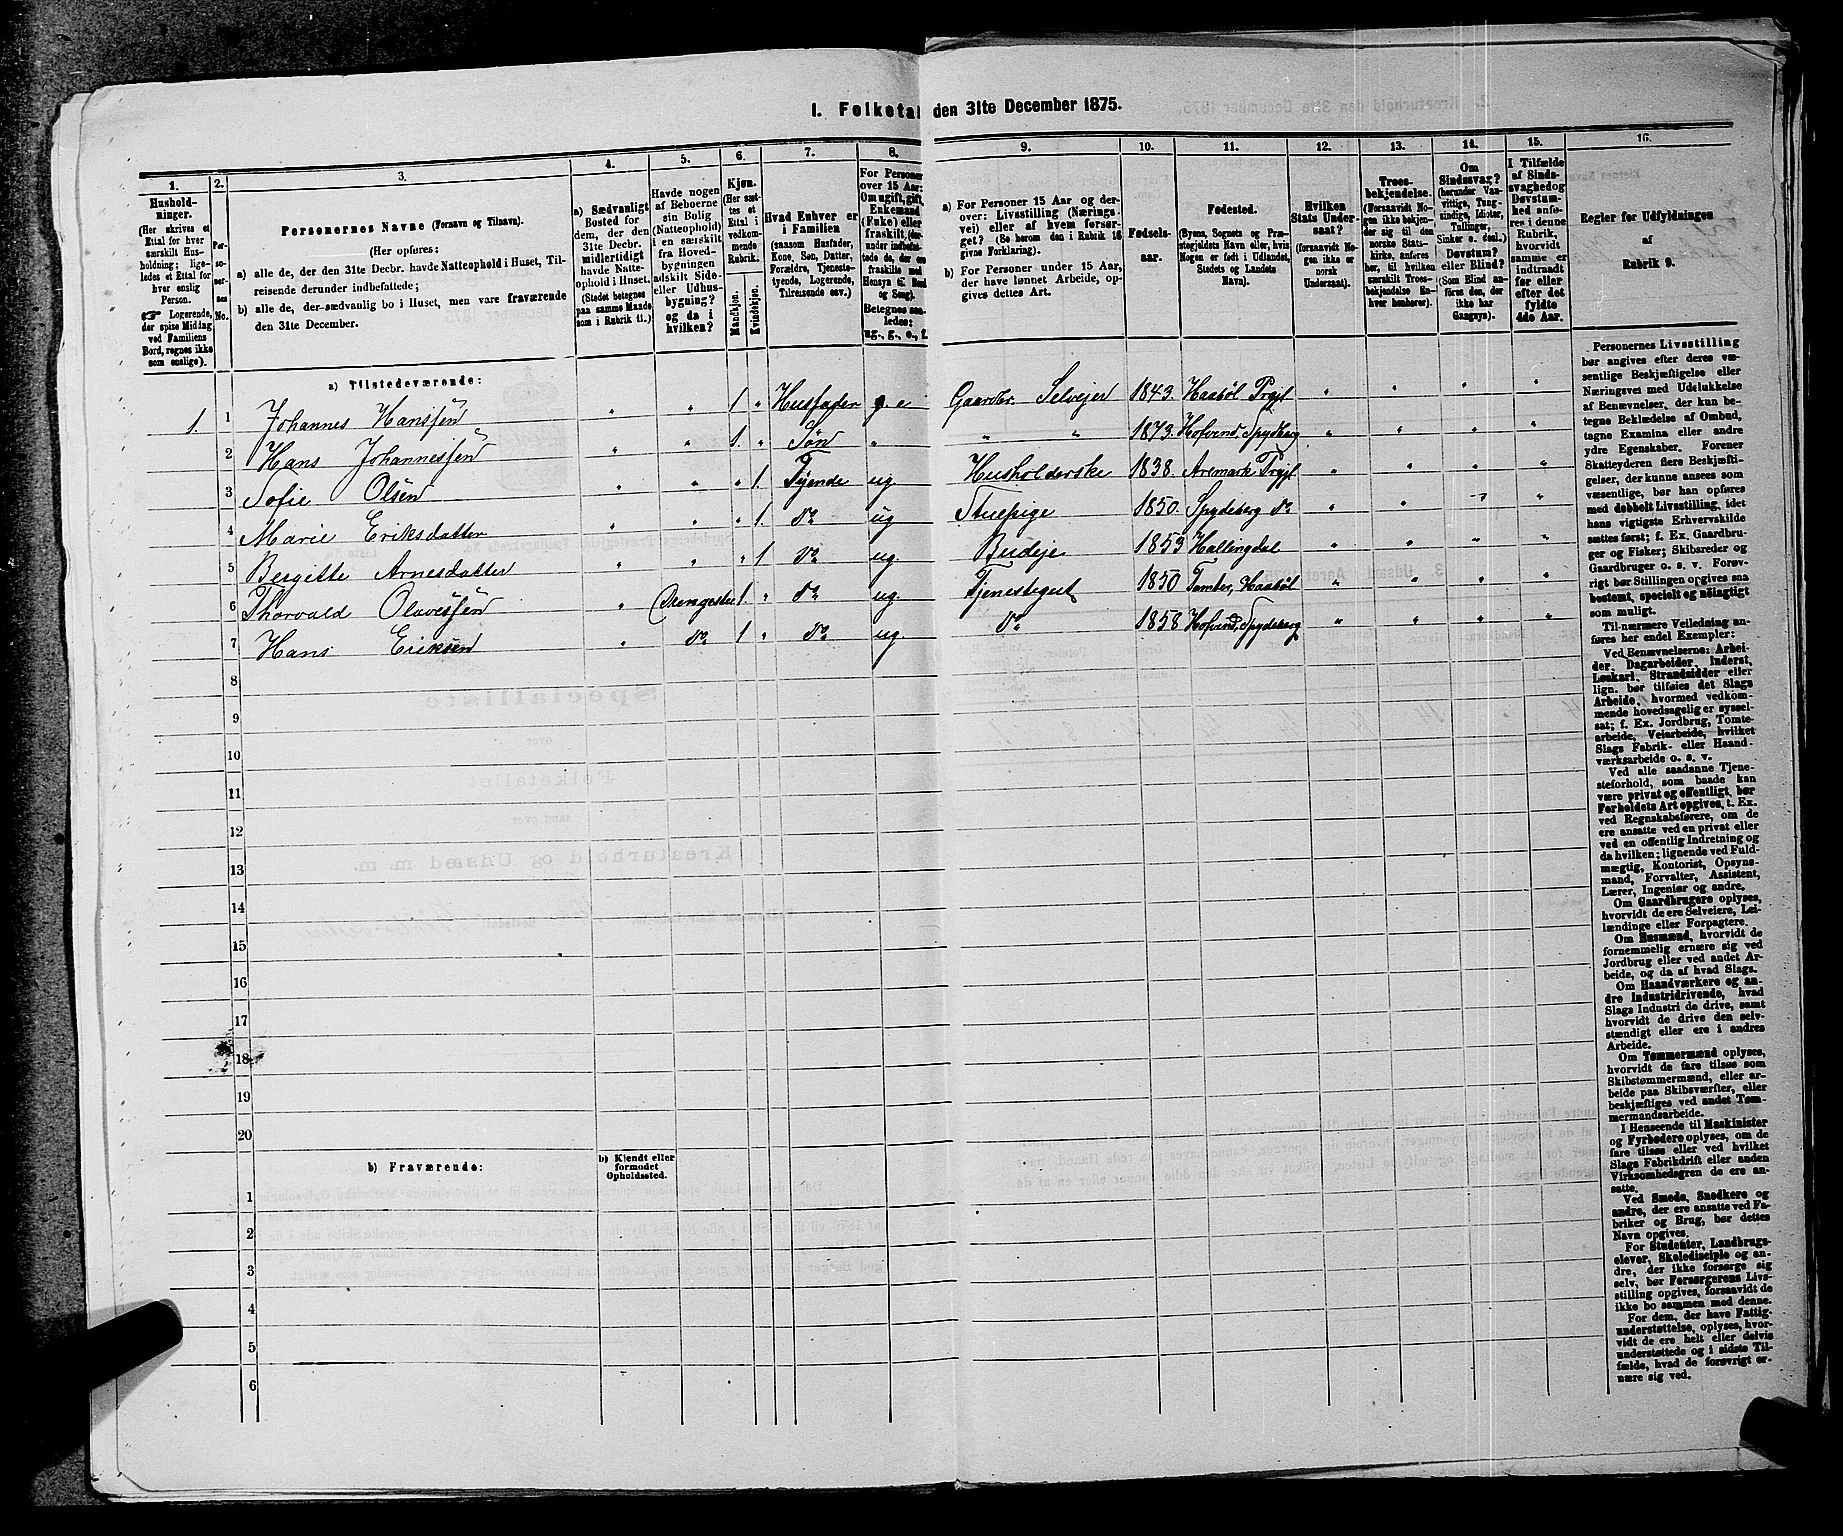 I. Folketa den 31te December 1875.
1. 2. 3. 4. 5. 6. 7. 8. 9. 10. 11. 12. 13. 14. 15. 16.
Hushold-
ninger.
(Her skrives et
Ettal for hver
særskilt Hus-
holdning; lige-
ledes et Ettal for
hver enslig
Person.
☞ Logerende,
der spise Middag
ved Familiens
Bord, regnes ikke
som enslige).
Personernes Navne (Fornavn og Tilnavn).
(Her opføres:
a) alle de, der den 31te Decbr. havde Natteophold i Huset, Til-
reisende derunder indbefattede;
b) alle de, der sædvanlig bo i Huset, men vare fraværende
den 31te December.
a) Sædvanligt
Bosted for
dem, der den
31te Decbr.
midlertidigt
havde Natte-
ophold i Huset.
(Stedet betegnes
paa samme Maade
som i Rubrik 11.)
Havde nogen
af Beboerne
sin Bolig
(Natteophold)
i en særskilt
fra Hoved-
bygningen
adskilt Side-
eller Udhus-
bygning?
og da i
hvilken?
Kjøn.
(Her sæt-
tes et
Ettal i
vedkom-
mende
Rubrik.)
Mandkjøn.
Kvindekjøn.
Hvad Enhver er
i Familien
(saasom Husfader,
Kone, Søn, Datter,
Forældre, Tjeneste-
tyende, Logerende,
Tilreisende osv.)
For Personer
over 15 Aar:
Om ugift, gift,
Enkemand
(Enke) eller
fraskilt,
Betegnes saa-
ledes:
ug., g., e., f.
a) For Personer 15 Aar og der-
over: Livsstilling (Nærings-
vei) eller af hvem forsør-
get? (Se herom den i Rubrik 16
givne Forklaring).
b) For Personer under 15 Aar,
der have lønnet Arbeide, op-
gives dettes Art.
Fødsels-
aar.
Fødested.
(Byens, Sognets og Præ-
stegjeldets Navn eller, hvis
Nogen er født i Udlandet,
Stedets og Landets
Navn).
Hvilken
Stats Under-
saat?
(forsaavidt No-
gen ikke er
norsk
Undersaat).
Troes-
bekjendelse.
(Forsaavidt No-
gen ikke bekjen-
der sig til den
norske Stats-
kirke, anføres
her, til hvilken
særskilt Troes-
bekjendelse En-
hver henhører).
Om
Sindssvag?
(herunder Van-
vittige, Tung-
sindige, Idioter,
Tullinger,
Sinker o. desl.)
Døvstum?
eller Blind?
(Som Blind an-
føres den, der
ikke har
Gangsyn).
I Tilfælde
af Sinds-
svaghed og
Døvstum-
hed anfø-
res i denne
Rubrik,
hvorvidt
samme er
indtraadt
før eller
efter det
fyldte
4de Aar.
Regler for Udfyldningen
af
Rubrik 9.
a) Tilstedeværende:
1. 1 Johannes Hanssen " " 1 " Husfader e Gaardbr. Selveier 1843. Haabøl Prgjl " " " "
2 Hans Johannessen " " 1. " Søn " " " 1873. Hofvind, Spydberg " " " "
3 Sofie Olsen " " " 1. Tyende ug. Husholderske 1838. Aremark Prgjl " " " "
4 Marie Eriksdatter " " " 1. do ug Stuepige 1850. Spydeberg do " " " "
5 Bergitte Arnesdatter " " " 1 do ug. Budeje 1853 Hallingdal " " " "
6 Thorvald Olavessen " Drengestue 1. " do ug. Tjenestegut 1850 Tomter, Haabøl " " " "
7 Hans Eriksen " do 1 " do ug do 1858 Hofvind, Spydeberg " " " "
8
9
10
11
12
13
14
15
16
17
18
19
20
b) Fraværende:
b) Kjendt eller
formodet
Opholdssted.
1
2
3
4
5
6
Personernes Livsstilling
bør angives efter deres væ-
sentlige Beskjæftigelse eller
Næringsvei med Udelukkelse
af Benævnelser, der kun be-
tegne Beklædelse af Ombud,
tagne Examina eller andre
ydre Egenskaber. Forener
Skatteyderen flere Beskjæfti-
gelser, der kunne ansees som
væsentlige, bør han opføres
med dobbelt Livsstilling, idet
hans vigtigste Erhvervskilde
sættes først; f. Ex. Gaardbru-
ger og Fisker; Skibsreder og
Gaardbruger o. s. v. Forøv-
rigt bør Stillingen opgives saa
bestemt, specielt og nøiagtigt
som muligt.
Til nærmere Veiledning an-
føres her endel Exempler:
Ved Benævnelserne: Arbei-
der, Dagarbeider, Inderst,
Løskarl, Strandsidder eller
lign. bør tilføies det Slags
Arbeide, hvormed vedkom-
mende hovedsagelig er syssel-
sat; f. Ex. Jordbrug, Tomte-
arbeide, Veiarbeide, hvilket
Slags Fabrik- eller Haand-
værksarbeide o. s. v.
Ved alle saadanne Tjene-
steforhold, som baade kan
være privat og offentligt, bør
Forholdets Art opgives, t. Ex.
ved Regnskabsførere, om de
ere ansatte ved en privat eller
ved en offentlig Indretning og
da hvilken; lignende ved Fuld-
mægtig, Kontorist, Opsyns-
mand, Forvalter, Assistent,
Lærer, Ingeniør og andre.
Om Gaardbrugere oplyses,
hvorvidt de ere Selveiere, Lei-
lændinge eller Forpagtere.
Om Husmænd, hvorvidt de
fornemmelig ernære sig ved
Jordbrug eller ved andet Ar-
beide, og da af hvad Slags.
Om Haandværkere og an-
dre Industridrivende, hvad
Slags Industri de drive, samt
hvorvidt de drive den selv-
stændigt eller ere i andres
Arbeide.
Om Tømmermænd oplyses,
hvorvidt de fare tilsøs som
Skibstømmermænd, eller ar-
beide paa Skibsværfter, eller
beskjæftiges ved andet Tøm-
mermandsarbeide.
I Henseende til Maskinister
og Fyrbødere oplyses, om de
fare tilsøs eller ved hvilket
Slags Fabrikdrift eller anden
Virksomhedsgren de ere an-
satte.
Ved Smede, Snedkere og
andre, der ere ansatte ved Fa-
briker og Brug, bør dettes
Navn opgives.
For Studenter, Landbrugs-
elever, Skoledisciple og an-
dre, der ikke forsørge sig
selv, bør Forsørgerens Livs-
stilling opgives, forsaavidt de
ikke bo sammen med denne.
For dem, der have Fattig-
understøttelse, oplyses, hvor-
vidt de ere helt eller delvis
understøttede og i sidste Til-
fælde, hvad de forøvrigt er-
nære sig ved.